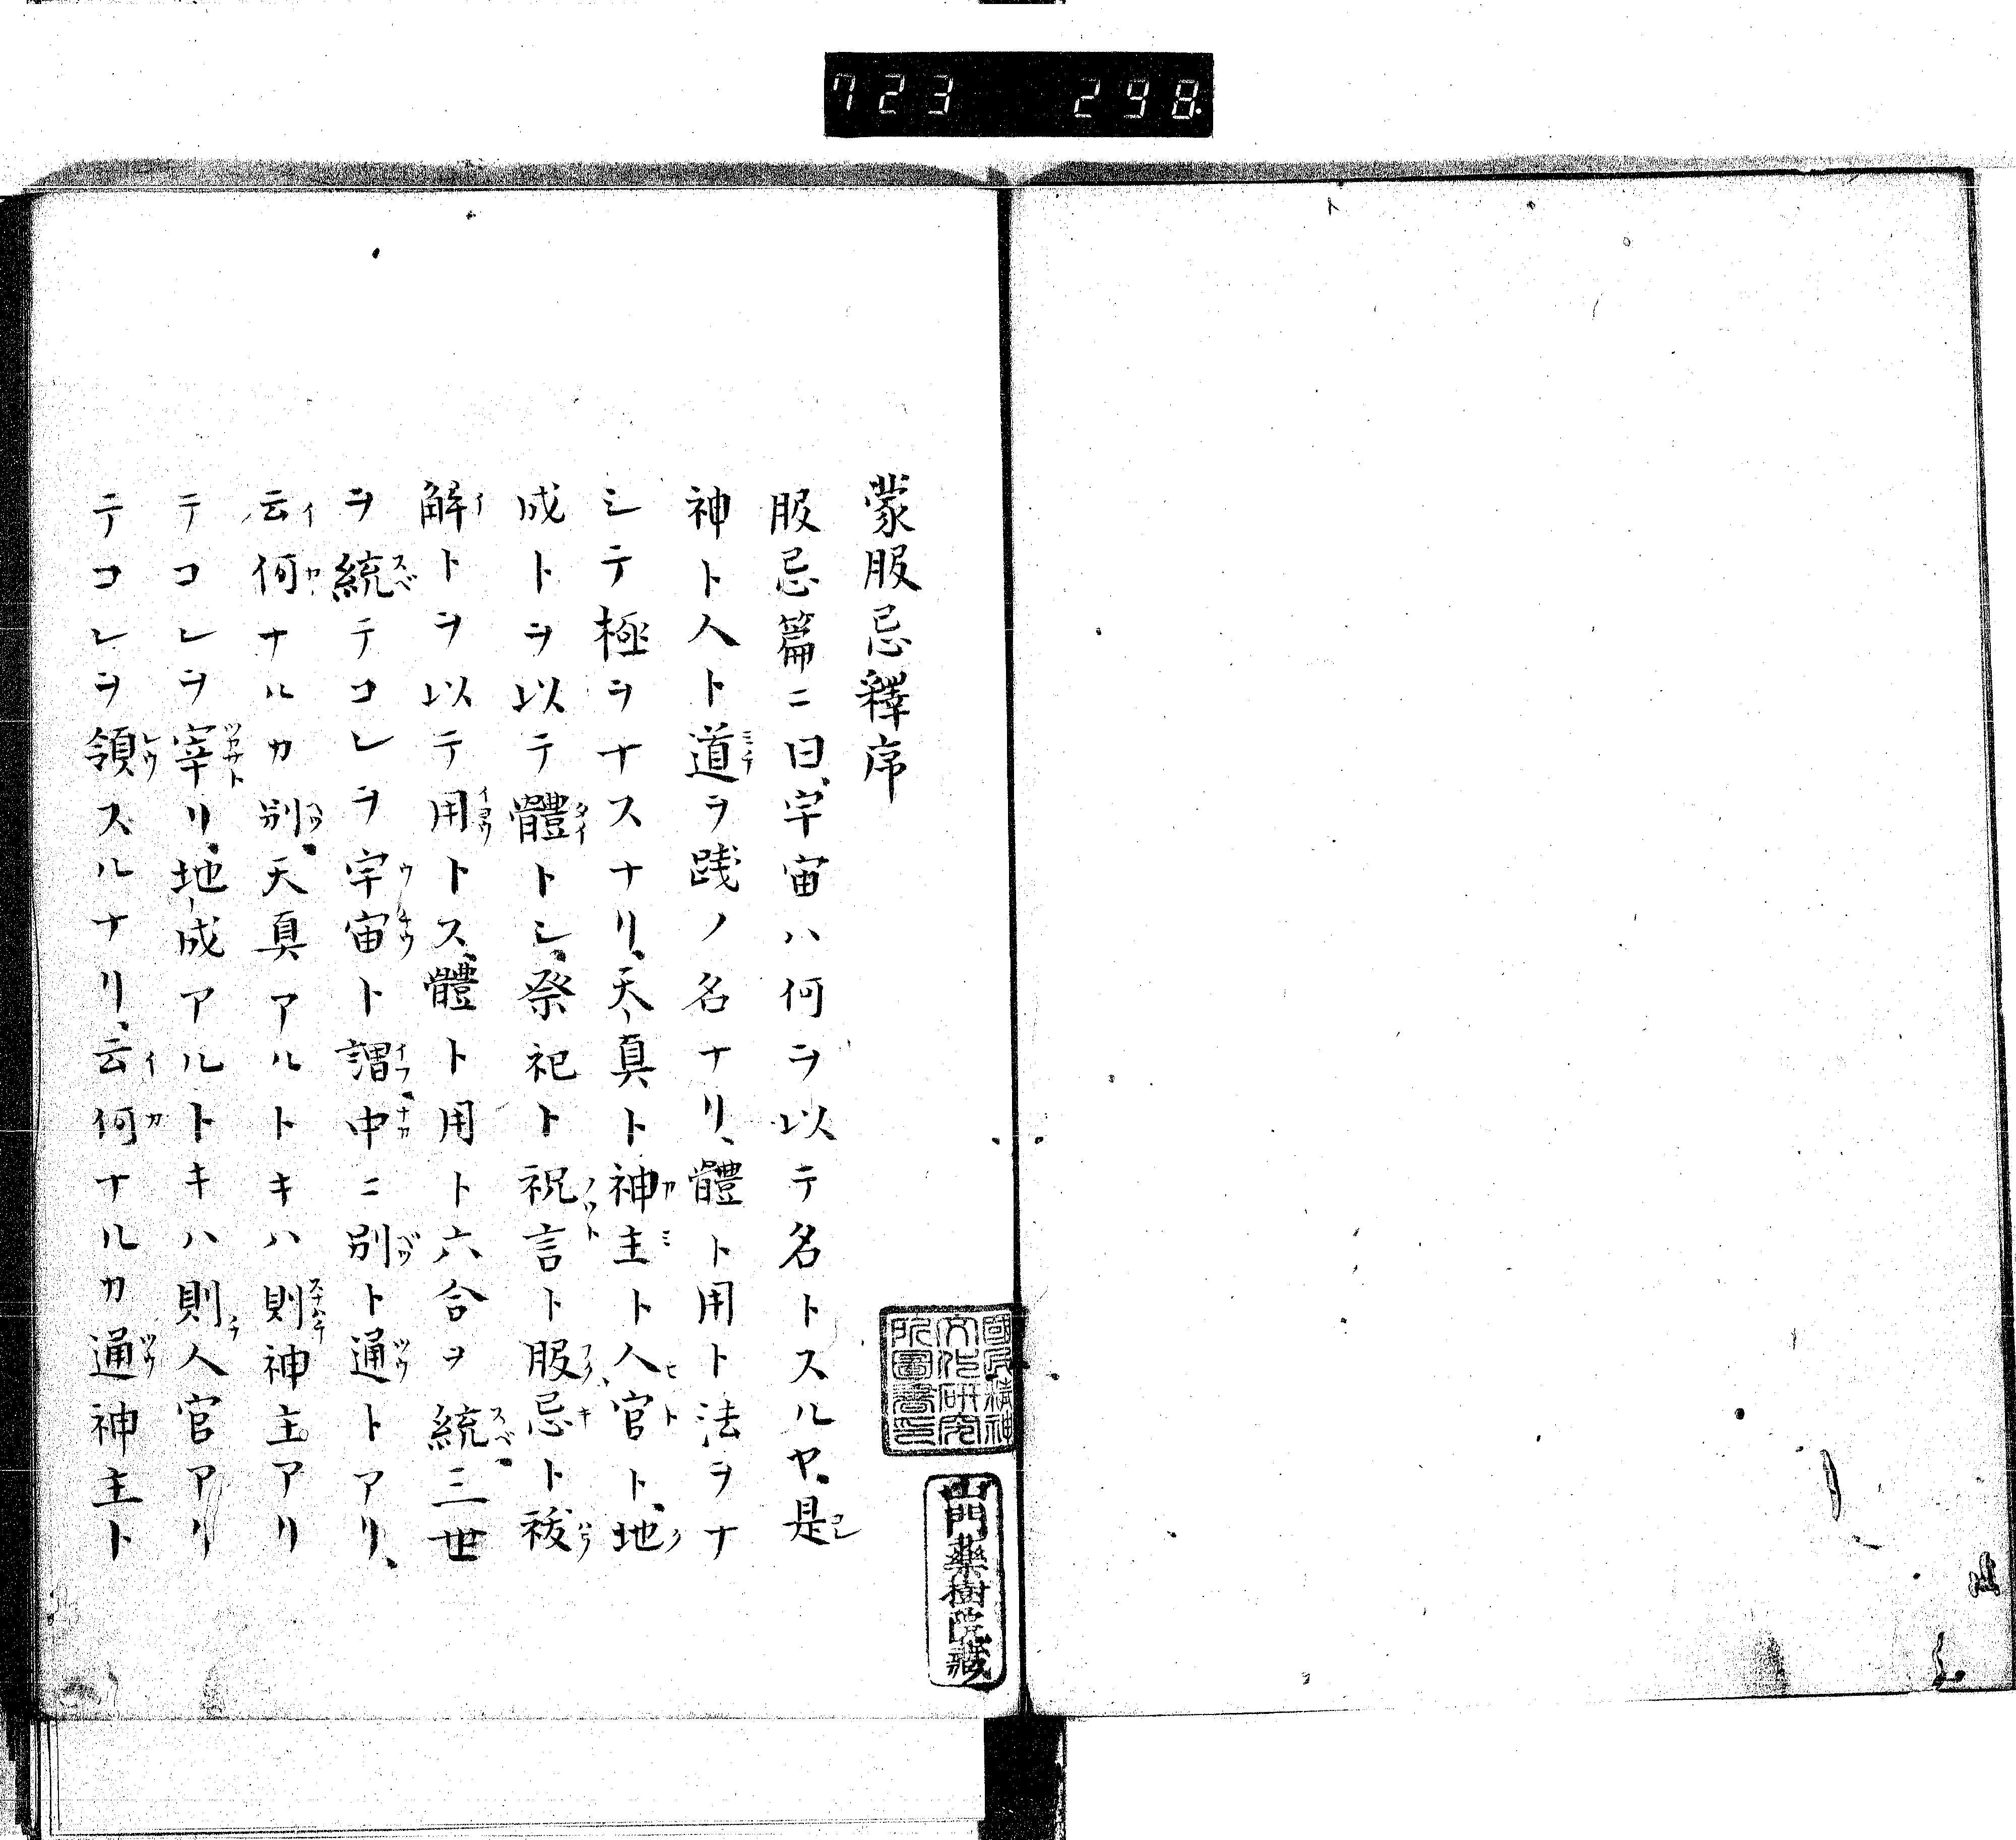 723 298
蒙服忌釋序
服忌篇ニ曰、宇宙ハ何ヲ以テ名トスルヤ、是
神ト人ト道ヲ践ノ名ナリ、體ト用ト法ヲナ
シテ極ヲナスナリ、天真ト神主ト人官ト、地
成トヲ以テ體トシ、祭祀ト祝言ト服忌ト祓
解トヲ以テ用トス、體ト用ト六合ヲ統三世
ヲ統テコレヲ宇宙ト謂中ニ別ト通トアリ、
云何ナルカ別、天真アルトキハ則神主アリ
テコレヲ宰リ、地成アルトキハ則人官アリ
テコレヲ領スルナリ、云何ナルカ通神主ト
國民精神
文化研究
所圖書印
山門藥樹院藏